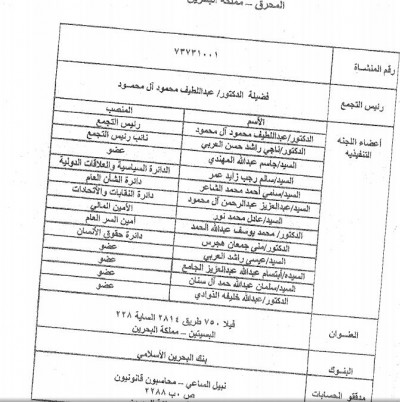 المحرق – مملكة البحرين
رقم المنشأة
٧٣٧٣١٠٠١
رئيس التجمع
فضيلة الدكتور/ عبداللطيف محمود آل محمود
أعضاء اللجنه التنفيذيه
الأسم المنصب
الدكتور/عبداللطيف محمود آل محمود رئيس التجمع
الدكتور/ناجي راشد حسن العربي نائب رئيس التجمع
السيد/جاسم عبدالله المهندي عضو
السيد/سالم رجب زايد عمر الدائرة السياسية والعلاقات الدولية
السيد/سامي أحمد محمد الشاعر دائرة الشأن العام
السيد/عبدالعزيز عبدالرحمن آل محمود دائرة النقابات والأتحادات
السيد/عادل محمد نور الأمين المالي
الدكتور/ محمد يوسف عبدالله الحمد أمين السر العام
الدكتور/منى جمعان هجرس دائرة حقوق الأنسان
السيد/عيسى راشد العربي عضو
السيده/أبتسام عبدالله عبدالعزيز الجامع عضو
السيد/سلمان عبدالله حمد آل سنان عضو
الدكتور/عبدالله خليفه الذوادي عضو
العنوان
فيلا ٧٥٠ طريق ٢٨١٤ الساية ٢٢٨
البسيتين – مملكة البحرين
البنوك
بنك البحرين الأسلامي
مدققو الحسابات
نبيل الساعي – محاسبون قانونيون
ص .ب ٢٢٨٨